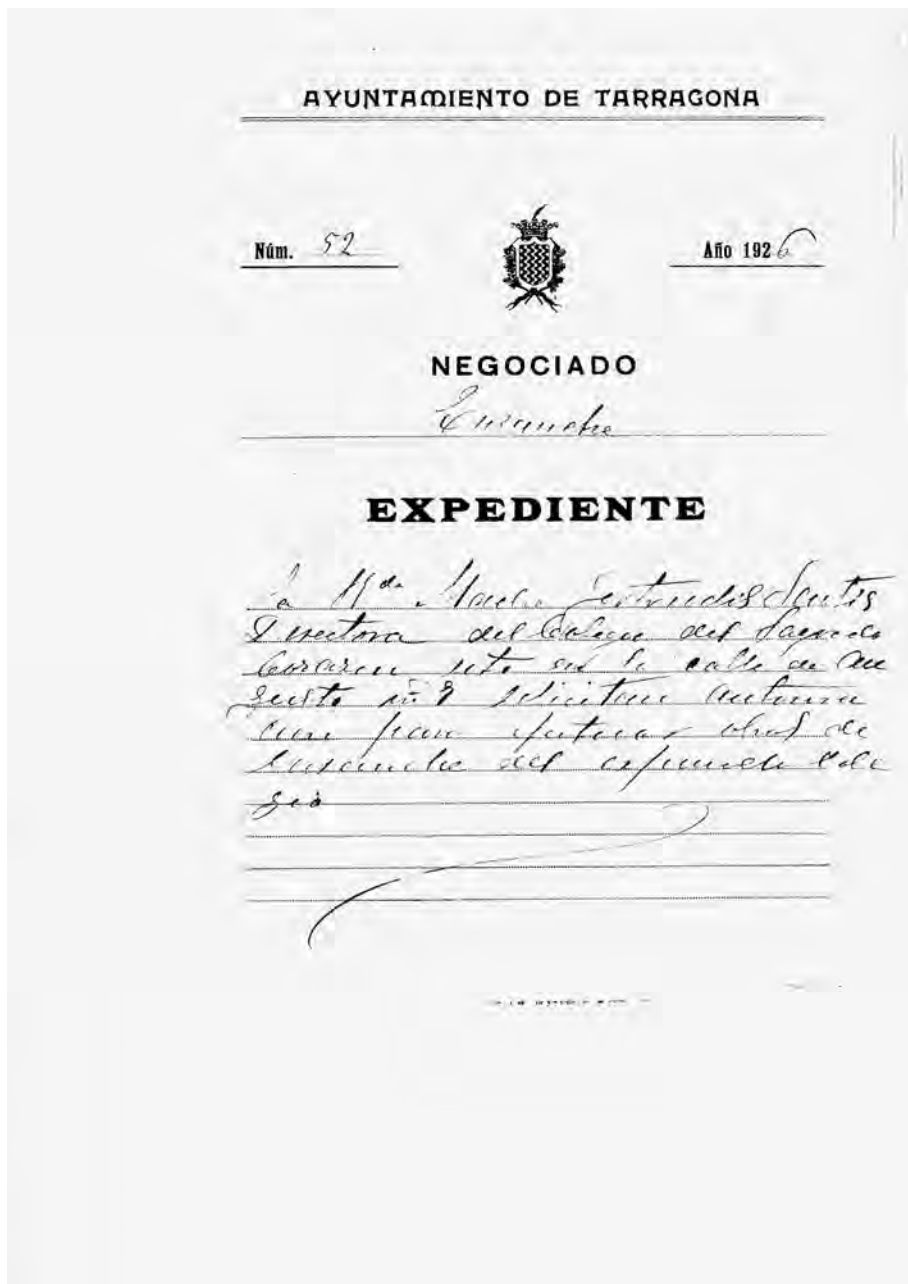 AYUNTAMIENTO DE TARRAGONA
Núm. 52
Año 1926
NEGOCIADO
Ensanche
EXPEDIENTE
La Rda. Madre Gertrudis
Directora del Colegio del Sagrado
Corazon sito en la calle de Au
gusto nº 9 solicitan autoriza
cion para efectuar obras de
Ensanche del expresado Cole
gio